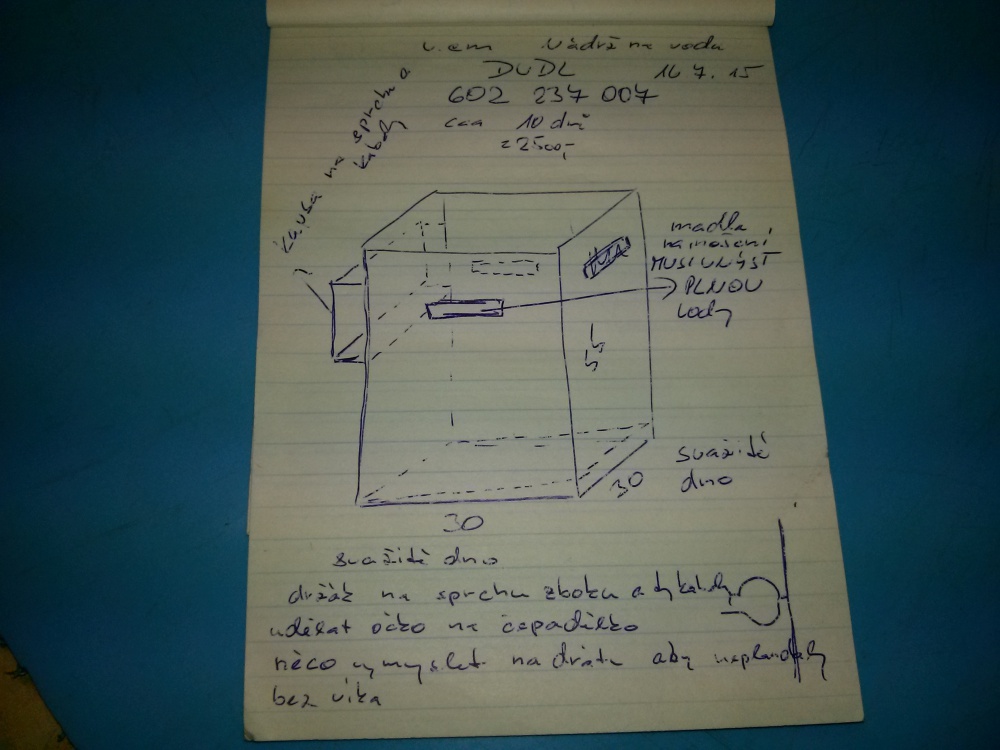 v. cm Nádrž na vodu
DUDL 16 7. 15
602 237 007
cca 10 dní
= 2500,-
na sprchu a
kabely
madla
na nošení
MUSI UNÝST
PLNOU
vody
45
30
svažité
dno
30
svažité dno
držák na sprchu zboku a ty kabely
udělat očko na čepadélko
něco vymyslet na dráty aby neplandaly
bez víka